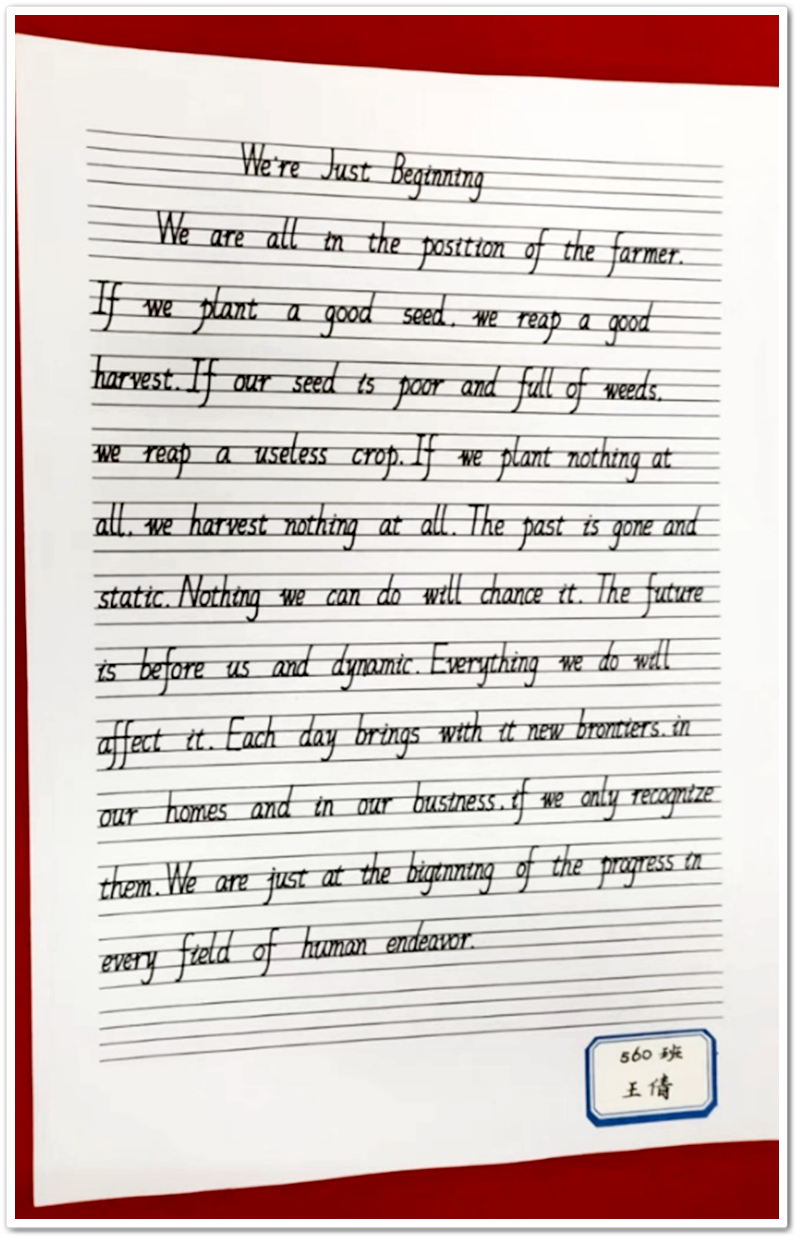 We're Just Beginning
We are all in the position of the farmer.
If we plant a good seed, we reap a good
harvest. If our seed is poor and full of weeds,
we reap a useless crop. If we plant nothing at
all, we harvest nothing at all. The past is gone and
static. Nothing we can do will chance it. The future
is before us and dynamic. Everything we do will
affect it. Each day brings with it new brontiers, in
our homes and in our business, if we only recognize
them. We are just at the biginning of the progress in
every field of human endeavor.
560 班
王倩